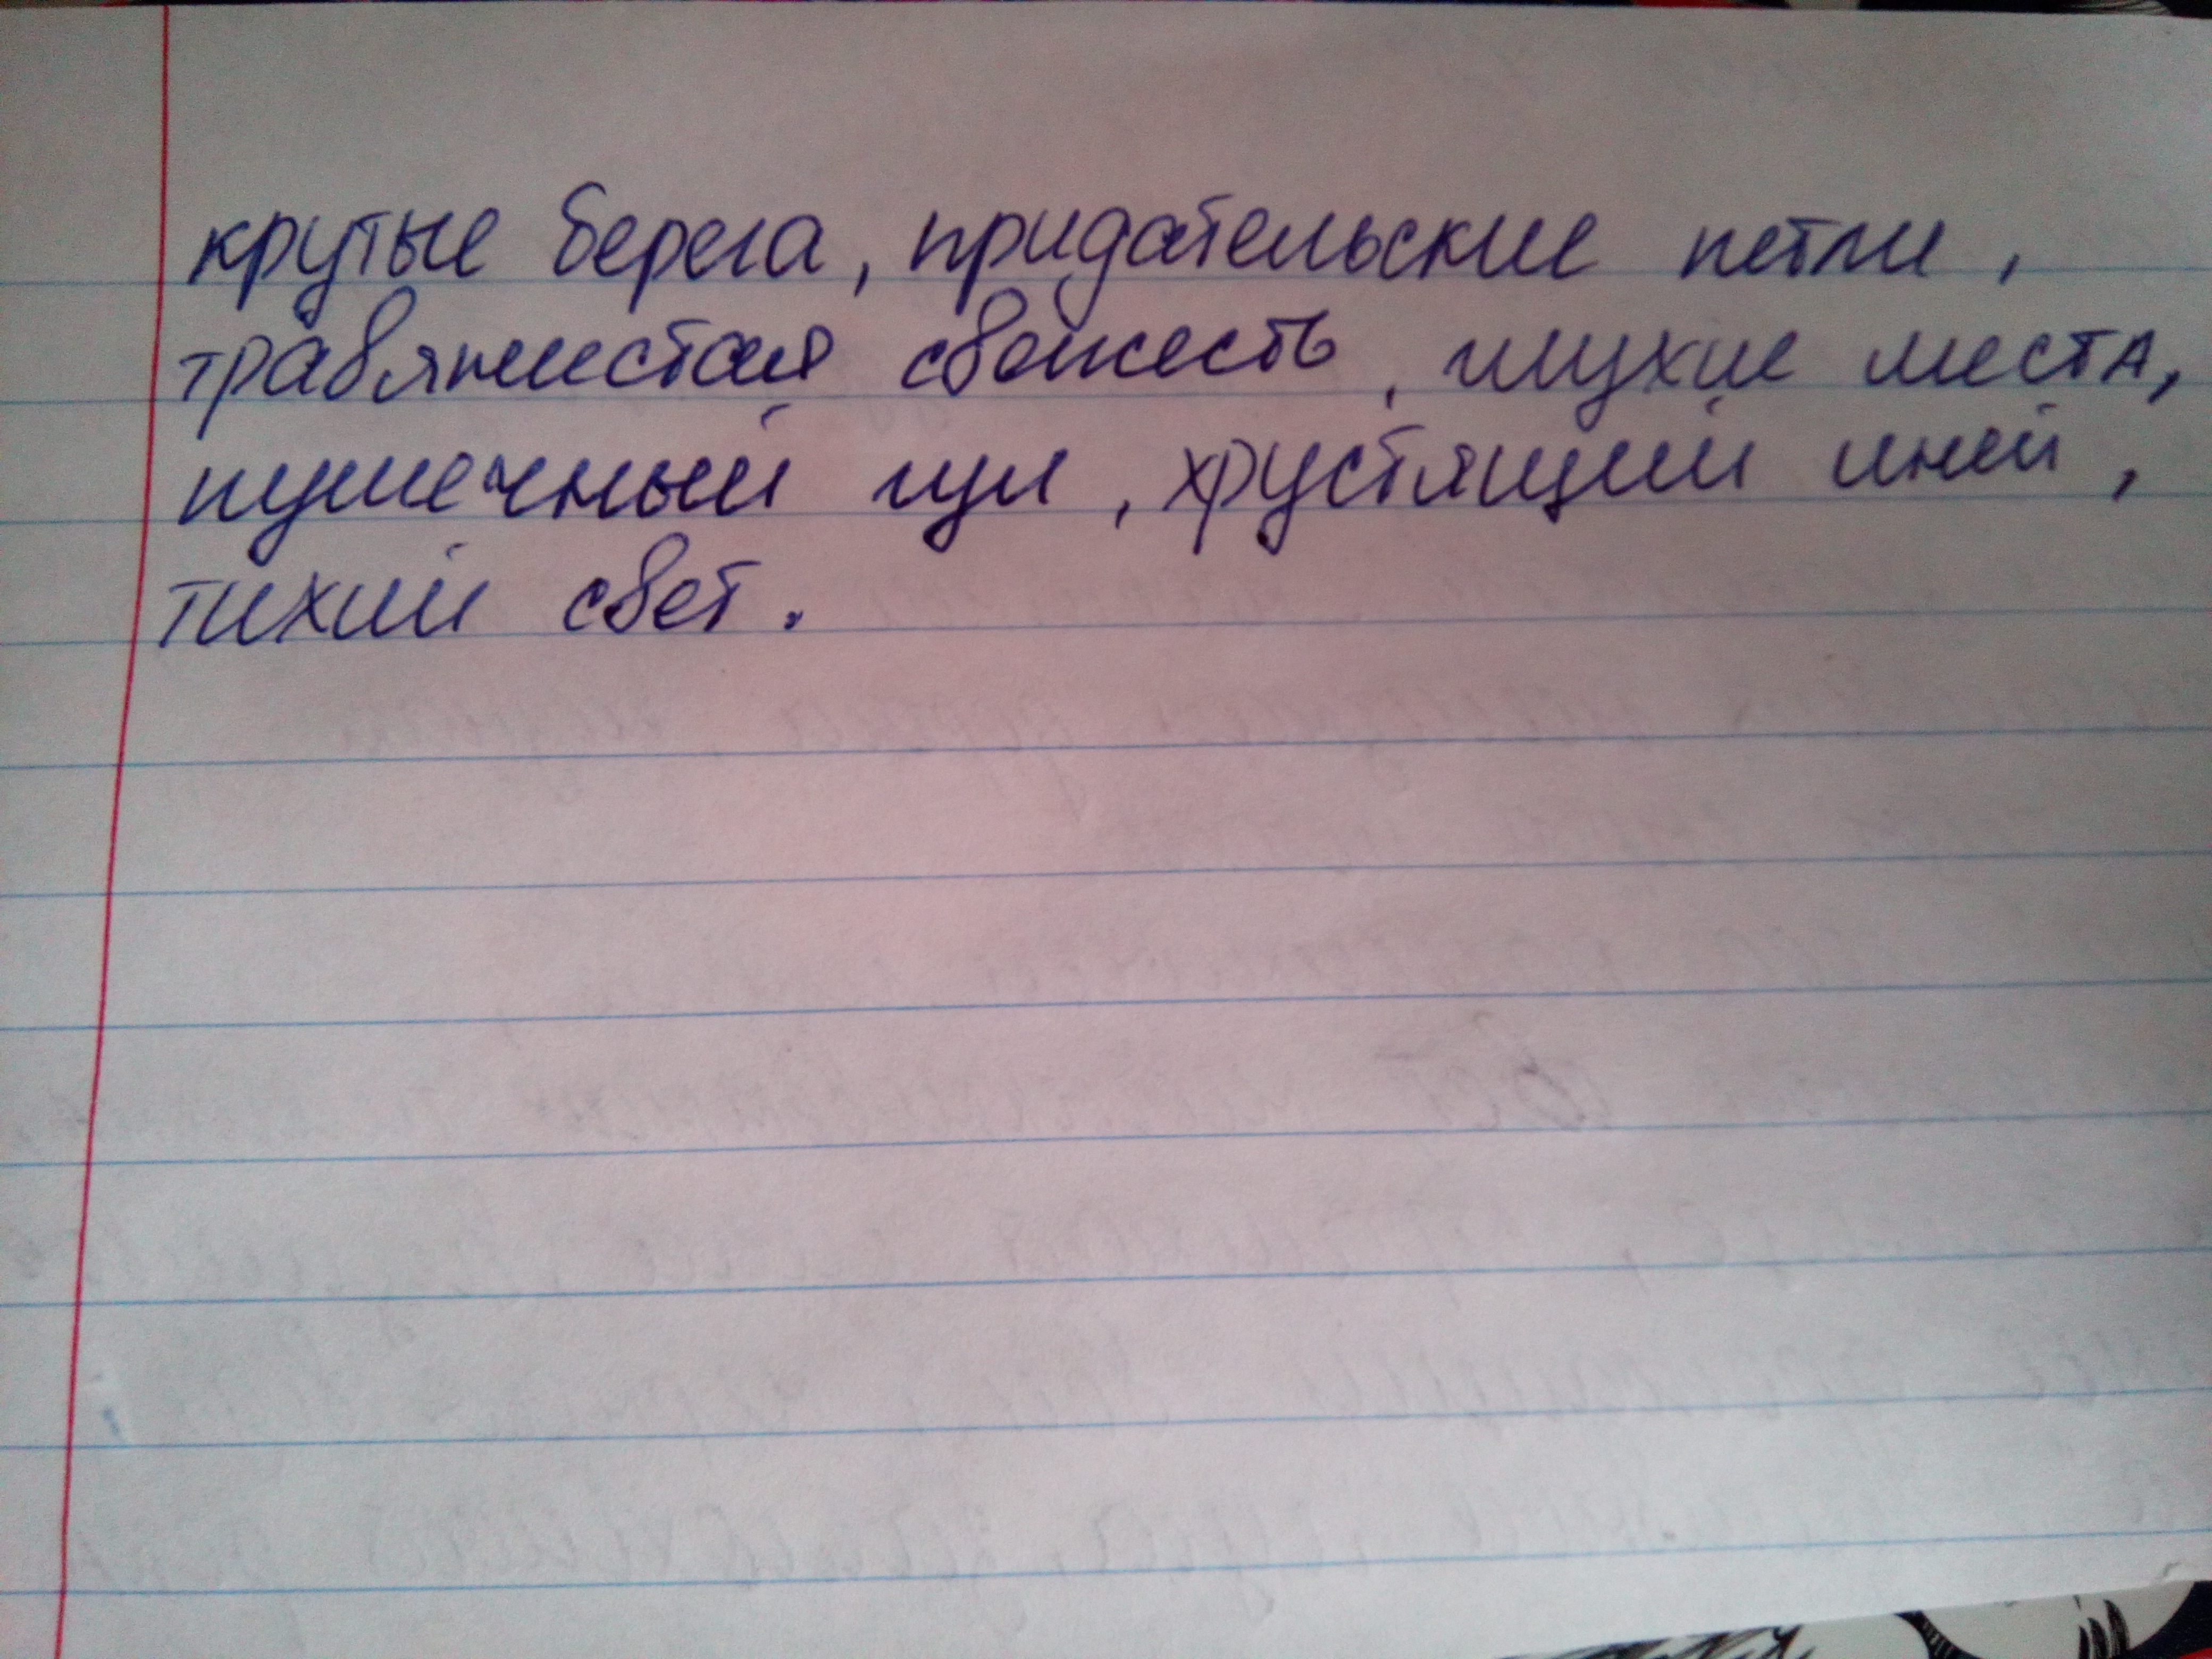 крутые берега, придательские петли,
травянистая свежесть, глухие места,
пушечный гул, хрустящий иней,
тихий свет.